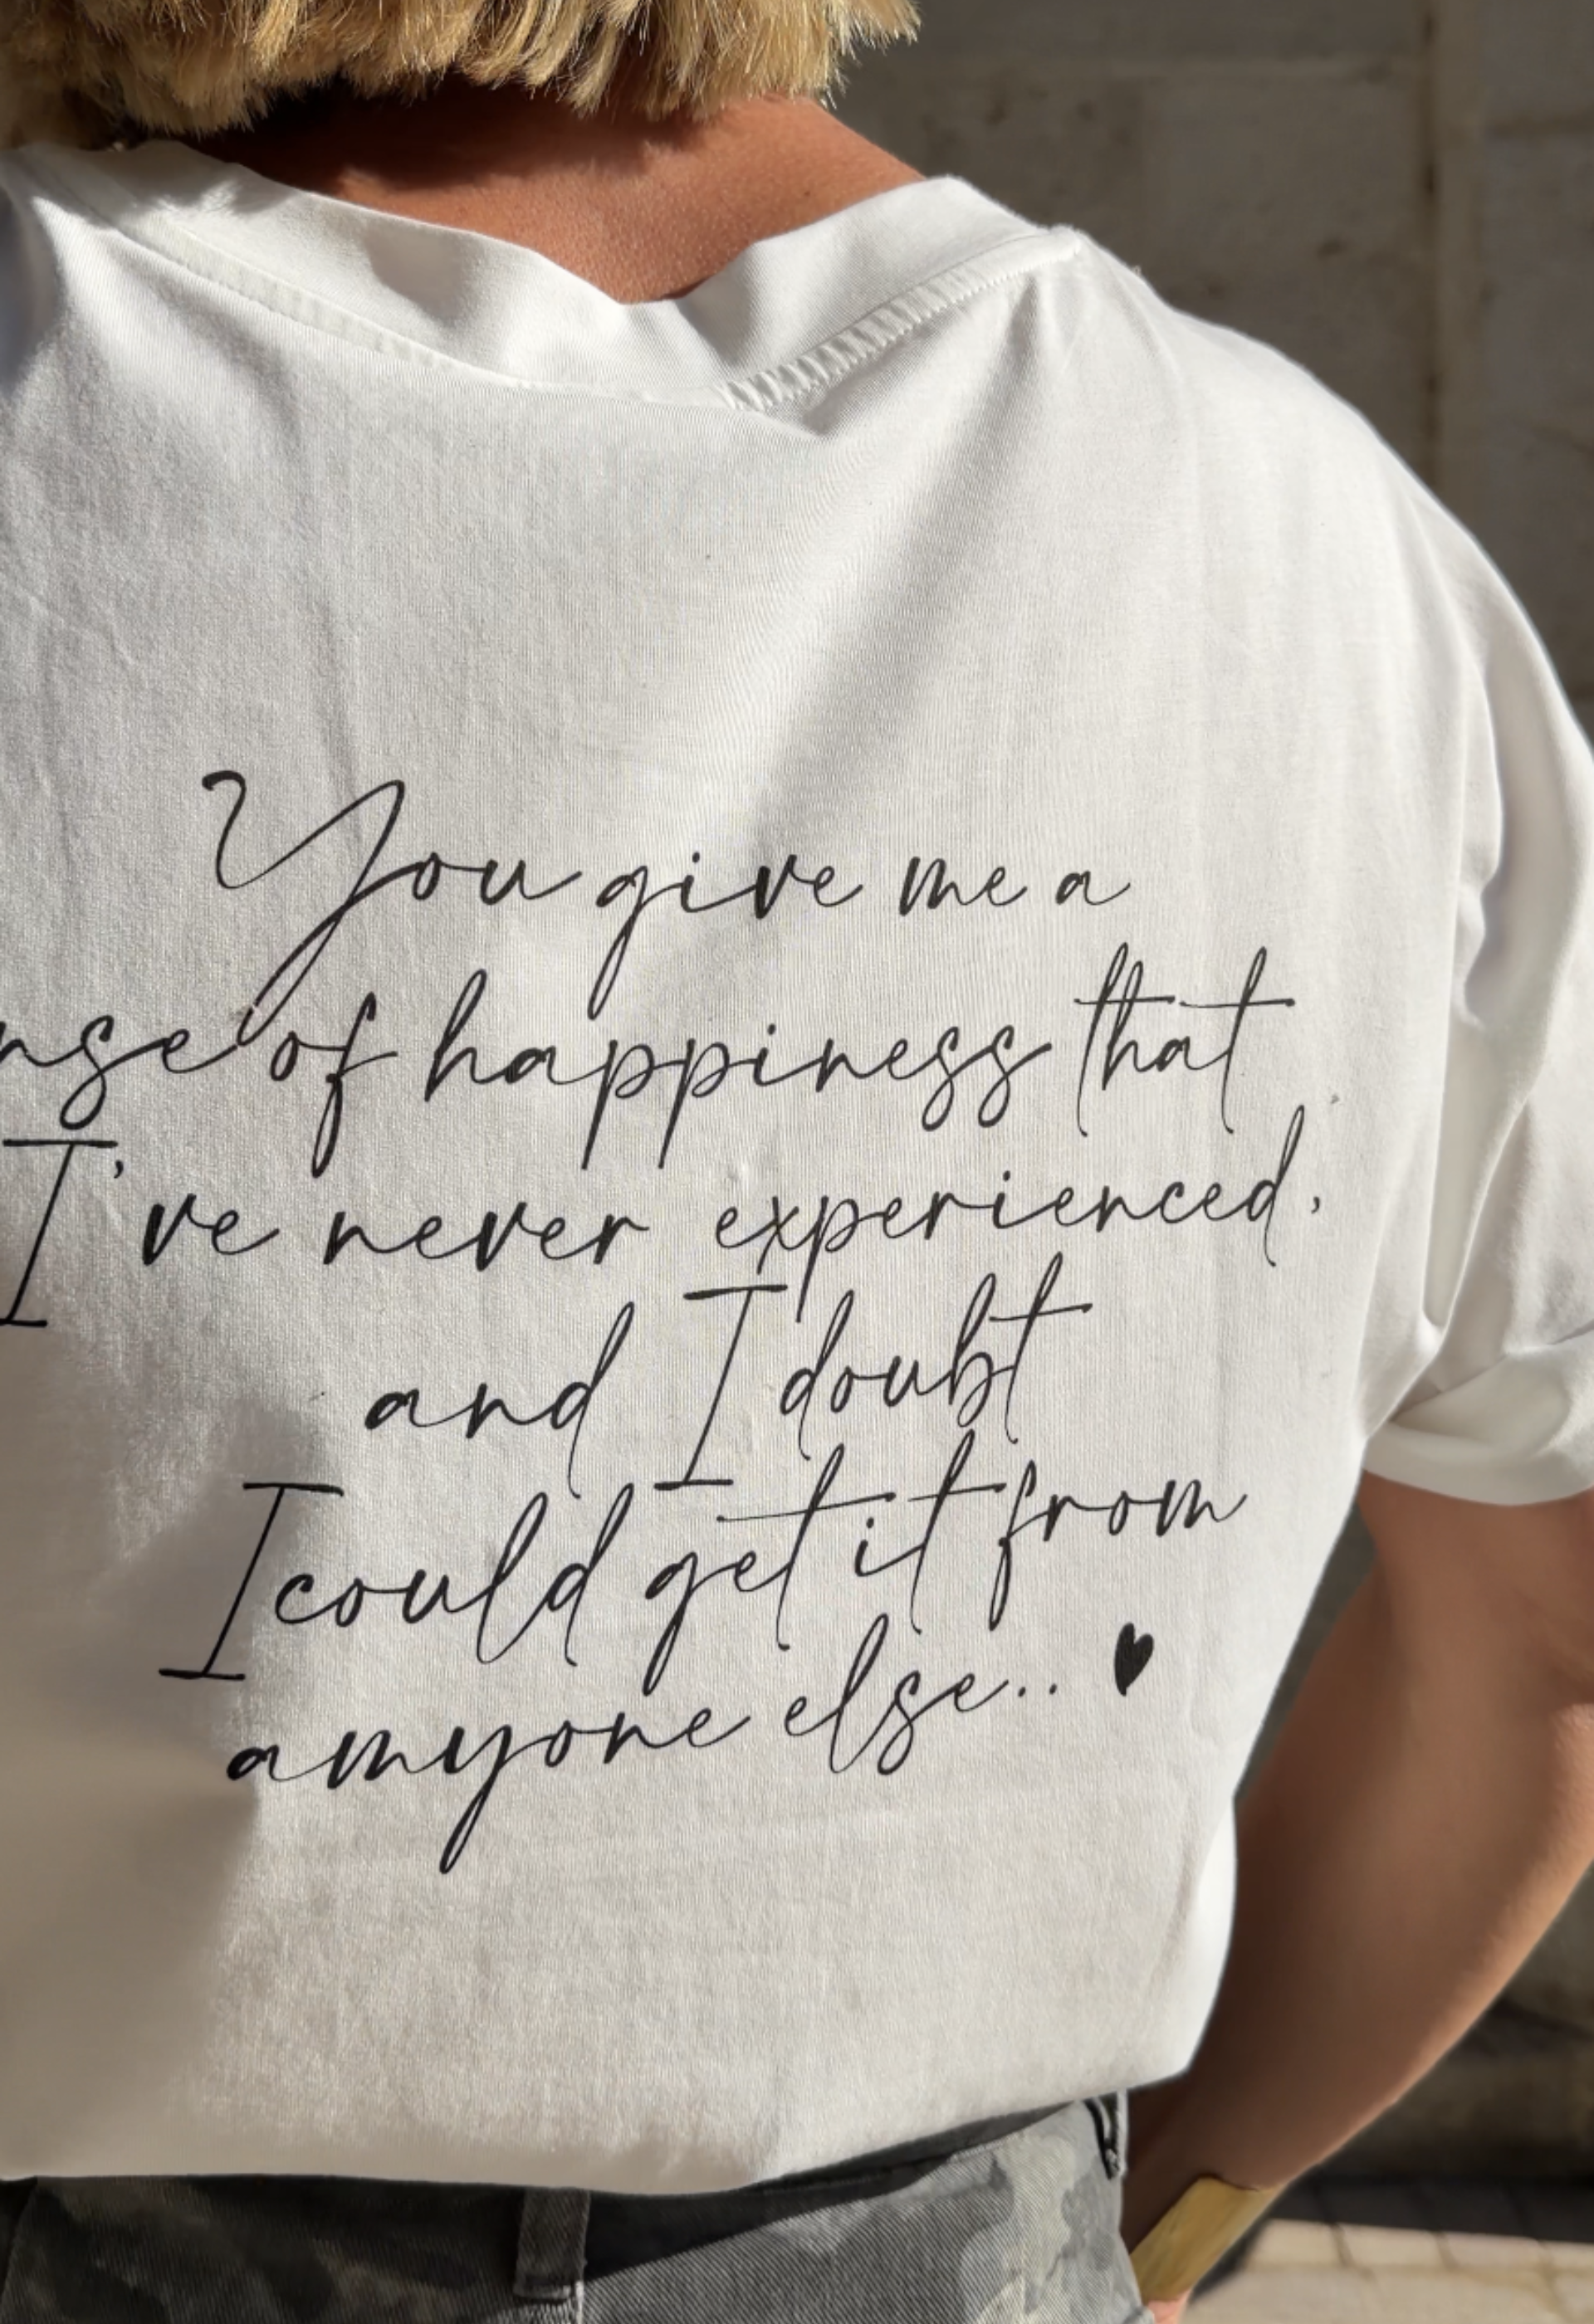 You give me a
nse of happiness that
I've never experienced,
and I doubt
I could get it from
amyone else.. ♥